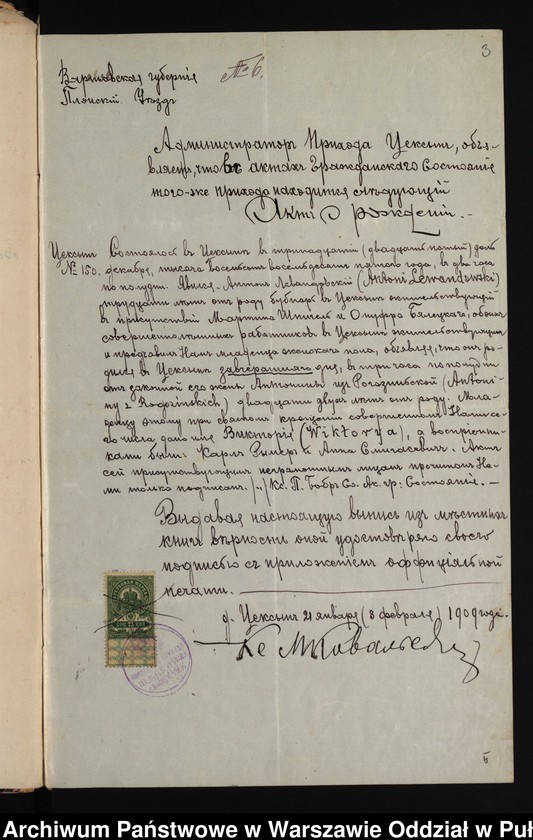 3
Варшавская губернія
№ 6.
Плонскій Уѣздъ
Администраторъ Прихода Цексынъ, объя-
вляетъ, что въ актахъ Гражданскаго Состоянія
того-же прихода находится слѣдующій
Актъ о рожденіи.
Цексынъ Состоялось въ Цексынѣ въ тринадцатый (двадцать пятый) день
№ 150. декабря, тысяча восемьсотъ восемьдесятъ пятого года, въ два часа
по полудни. Явился Антонъ Левандовскій (Antoni Lewandowski)
тридцати лѣтъ отъ роду въ Цексынѣ жительствующій
въ присутствіи Мартина и Онуфра обоихъ
совершеннолѣтнихъ работниковъ въ Цексынѣ жительствующихъ
и предъявилъ Намъ младенца женскаго пола, объявляя, что онъ ро-
дился въ Цексынѣ дня, въ три часа по полудни
отъ законной его жены Антонины изъ Рогозинской (Antoni-
ny z Rogozińskich) двадцати двухъ лѣтъ отъ роду. Мла-
денцу этому при святомъ крещеніи совершенномъ Нами се-
го числа дано имя Викторія (Wiktorya), а воспріемни-
ками были: Карлъ и Анна. Актъ
сей присутствующимъ неграмотнымъ лицамъ прочитанъ На-
ми только подписанъ. (-) Кс. П. Бобръ Со. Ак. Гр: Состоянія. —
Выдавая настоящую выпись изъ мѣстныхъ
книгъ вѣрность оной удостовѣряю своею
подписью съ приложеніемъ оффиціальной
печати.
д. Цексынъ 21 января (3 февраля) 1909 года.
Кс М Ковалевскі
5
Archiwum Państwowe w Warszawie Oddział w Puł